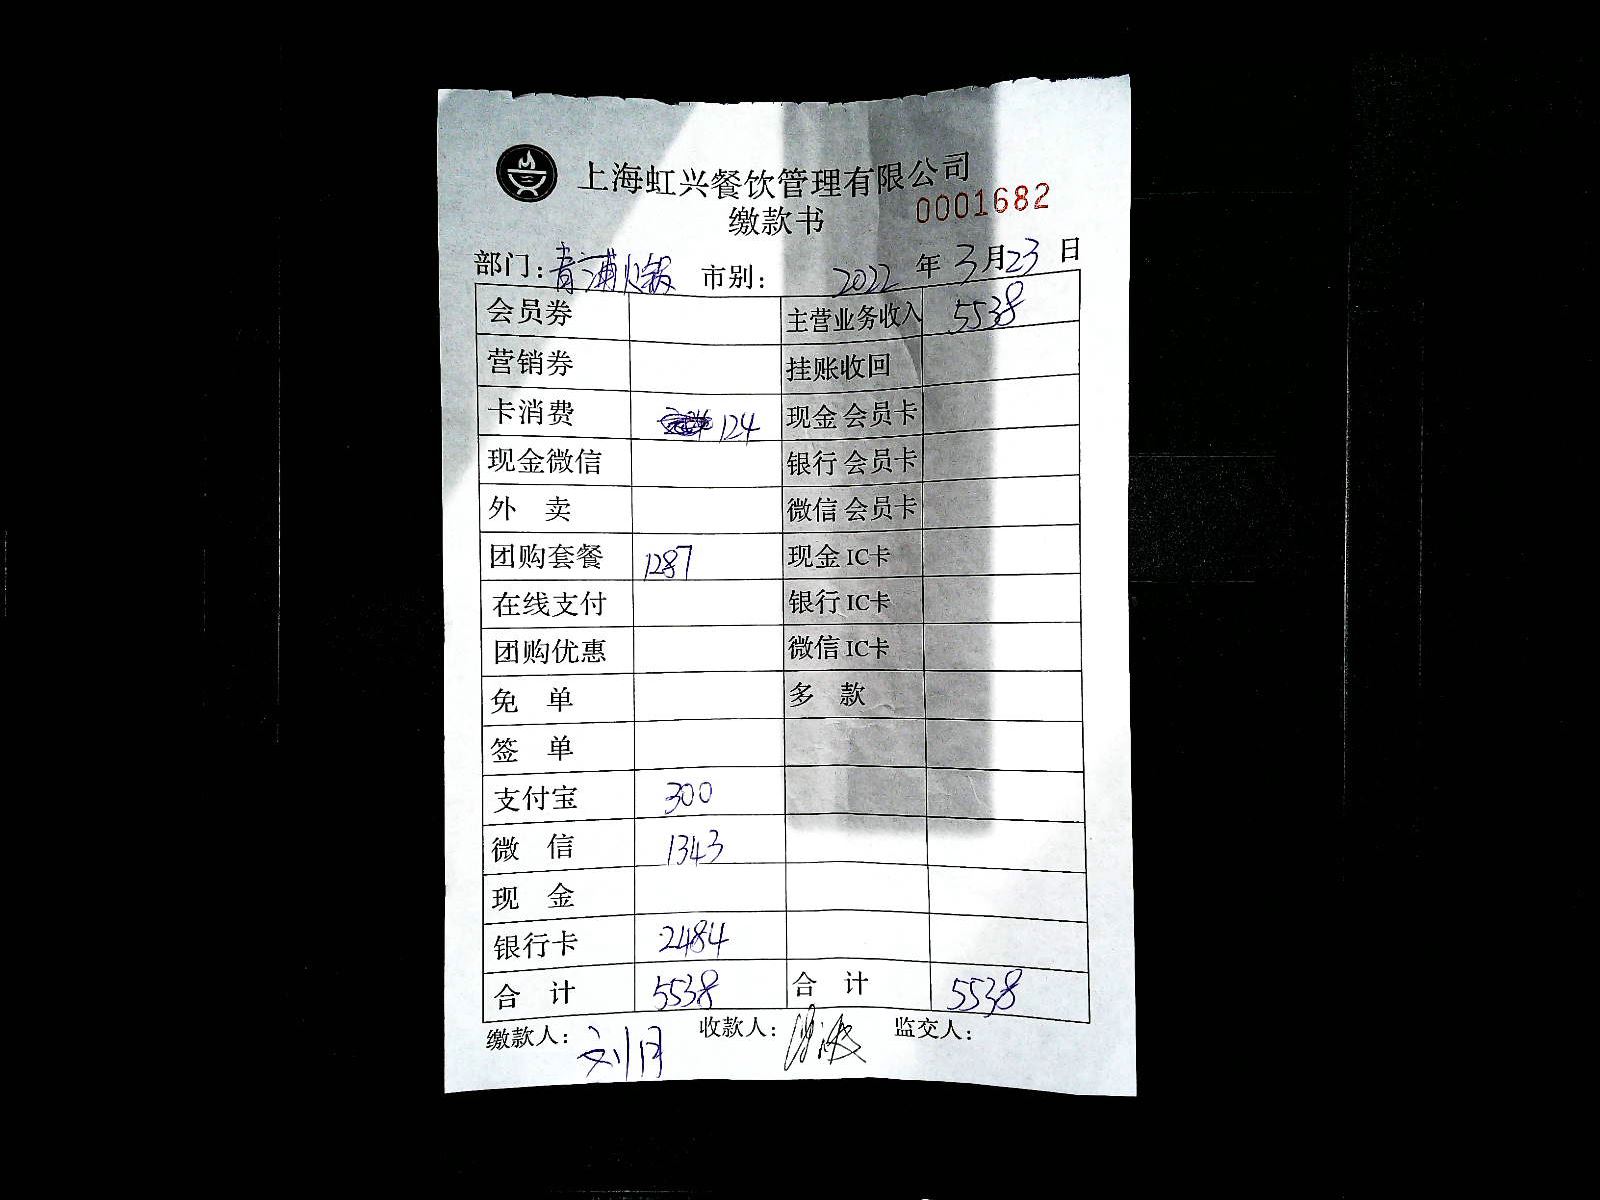 上海虹兴餐饮管理有限公司
缴款书 0001682
部门：青浦火锅 市别： 2022 年 3 月 23 日
会员券 主营业务收入 5538
营销券 挂账收回
卡消费 124 现金 会员卡
现金微信 银行 会员卡
外 卖 微信 会员卡
团购套餐 1287 现金 IC卡
在线支付 银行 IC卡
团购优惠 微信 IC卡
免 单 多 款
签 单
支付宝 300
微 信 1343
现 金
银行卡 2484
合 计 5538 合 计 5538
缴款人：刘月 收款人： 监交人：